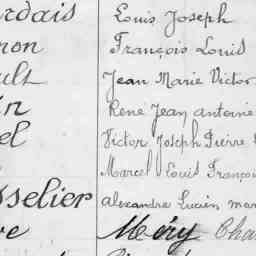 rdais Louis Joseph
non François Louis
ult Jean Marie Victor
in René Jean Antoine
el Victor Joseph Pierre
Marcel Louis Françoi
sselier Alexandre Lucien mar
ve Méry Cha